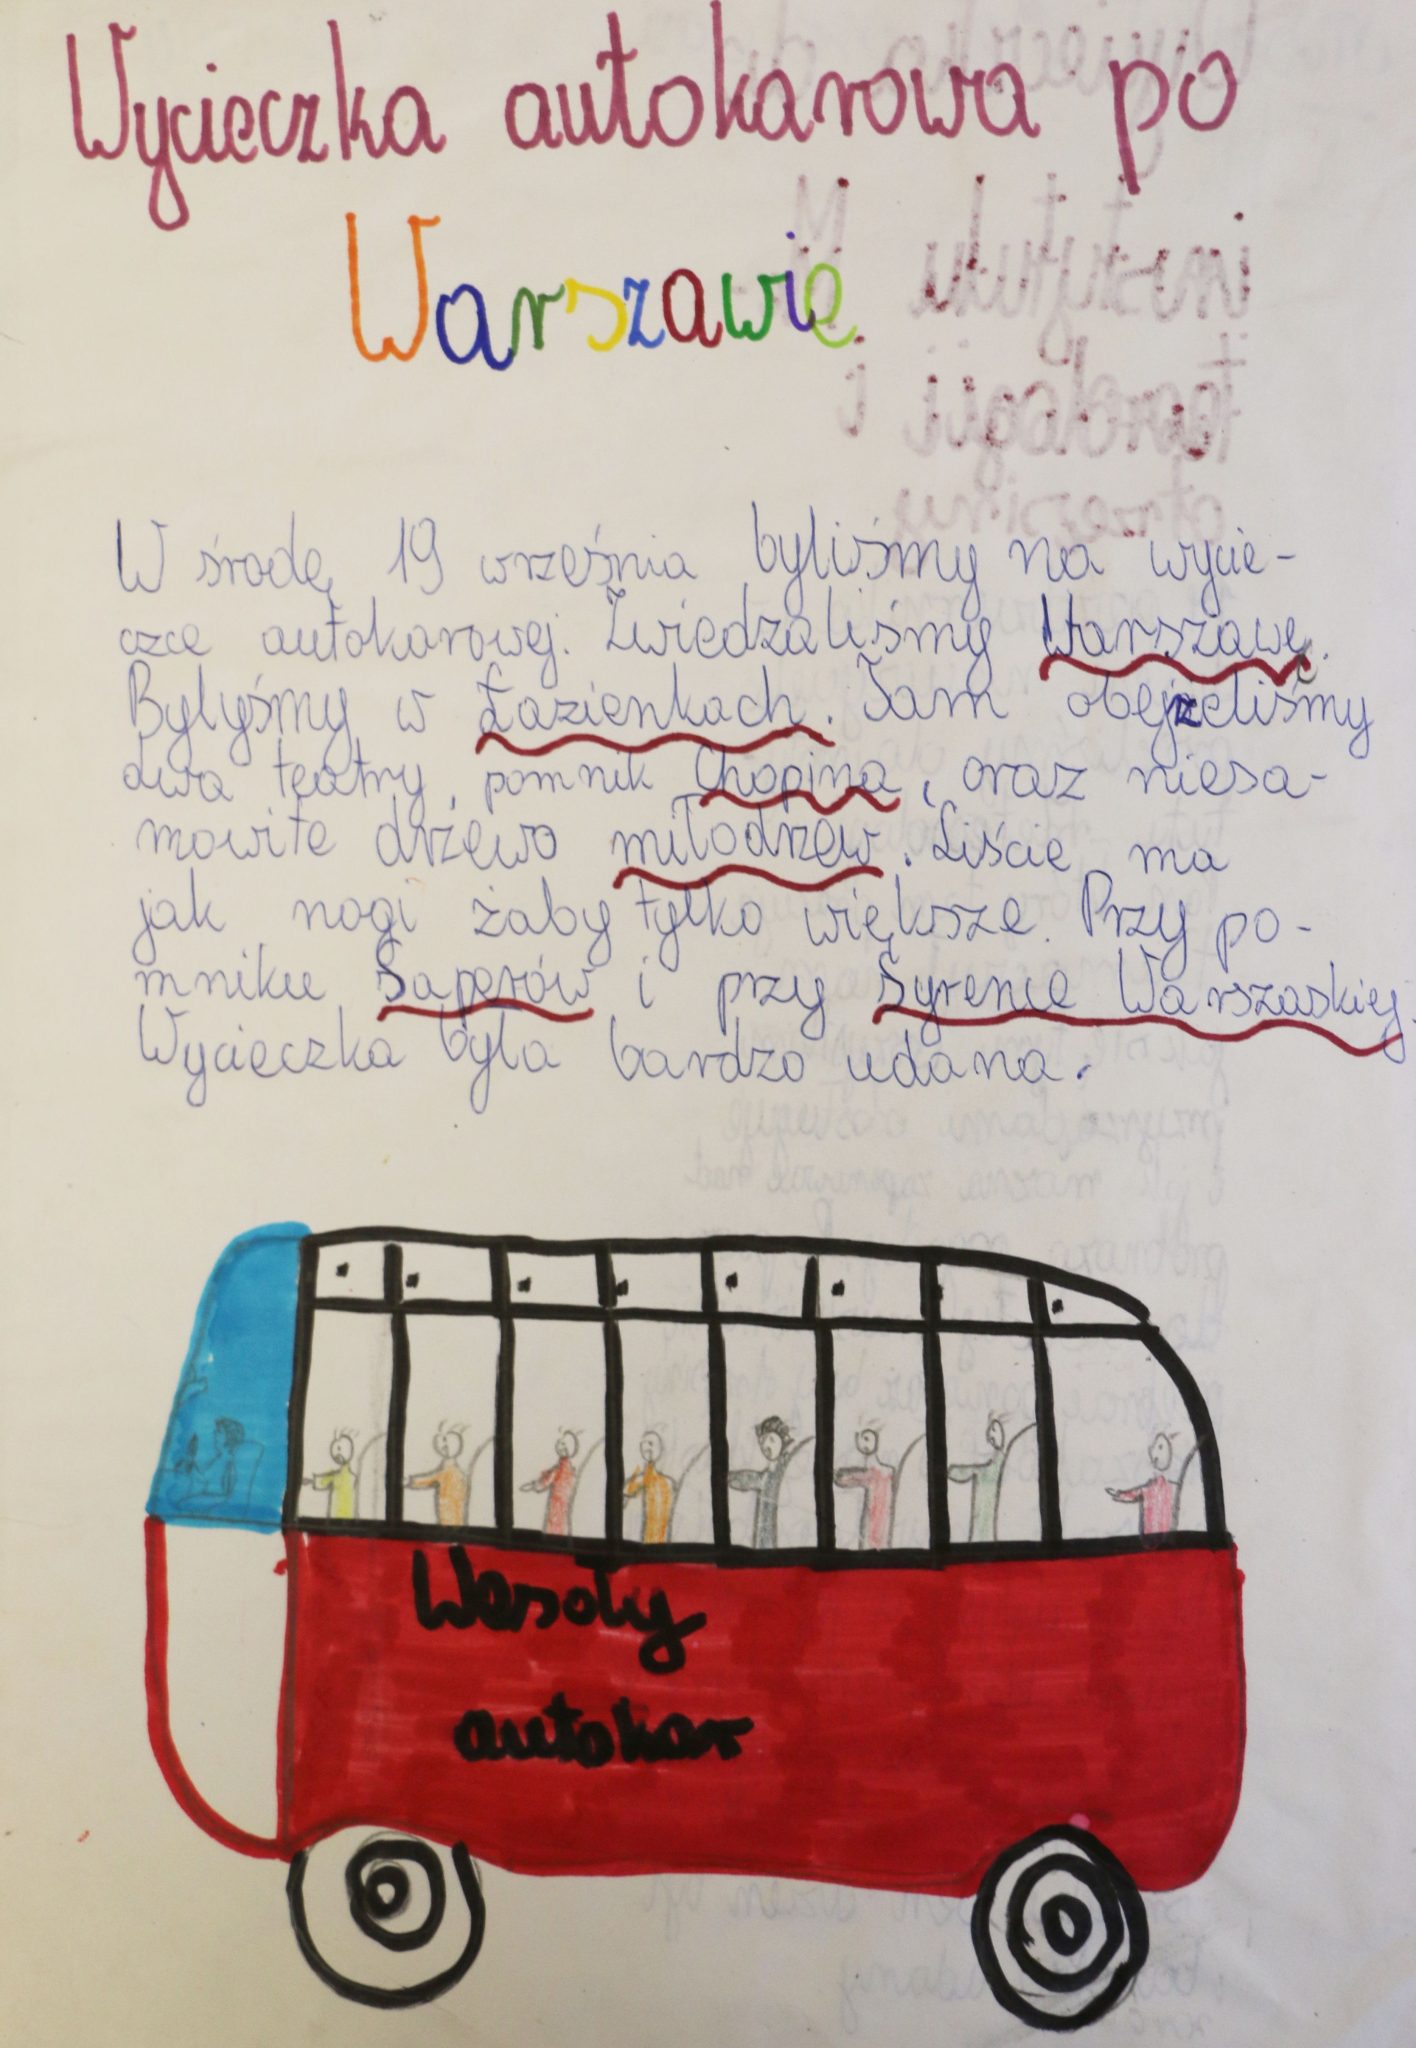 Wycieczka autokarowa po
Warszawie
W środę, 19 września byliśmy na wycie-
czce autokarowej. Zwiedzaliśmy Warszawę.
Bylyśmy w Łazienkach. Tam obejrzeliśmy
dwa teatry, pomnik Chopina, oraz niesa-
mowite drzewo miłodrzew. Liście ma
jak nogi żaby tylko większe. Przy po-
mniku Saperów i przy Syrence Warszaskiej.
Wycieczka była bardzo udana.
Wesoły
autokar